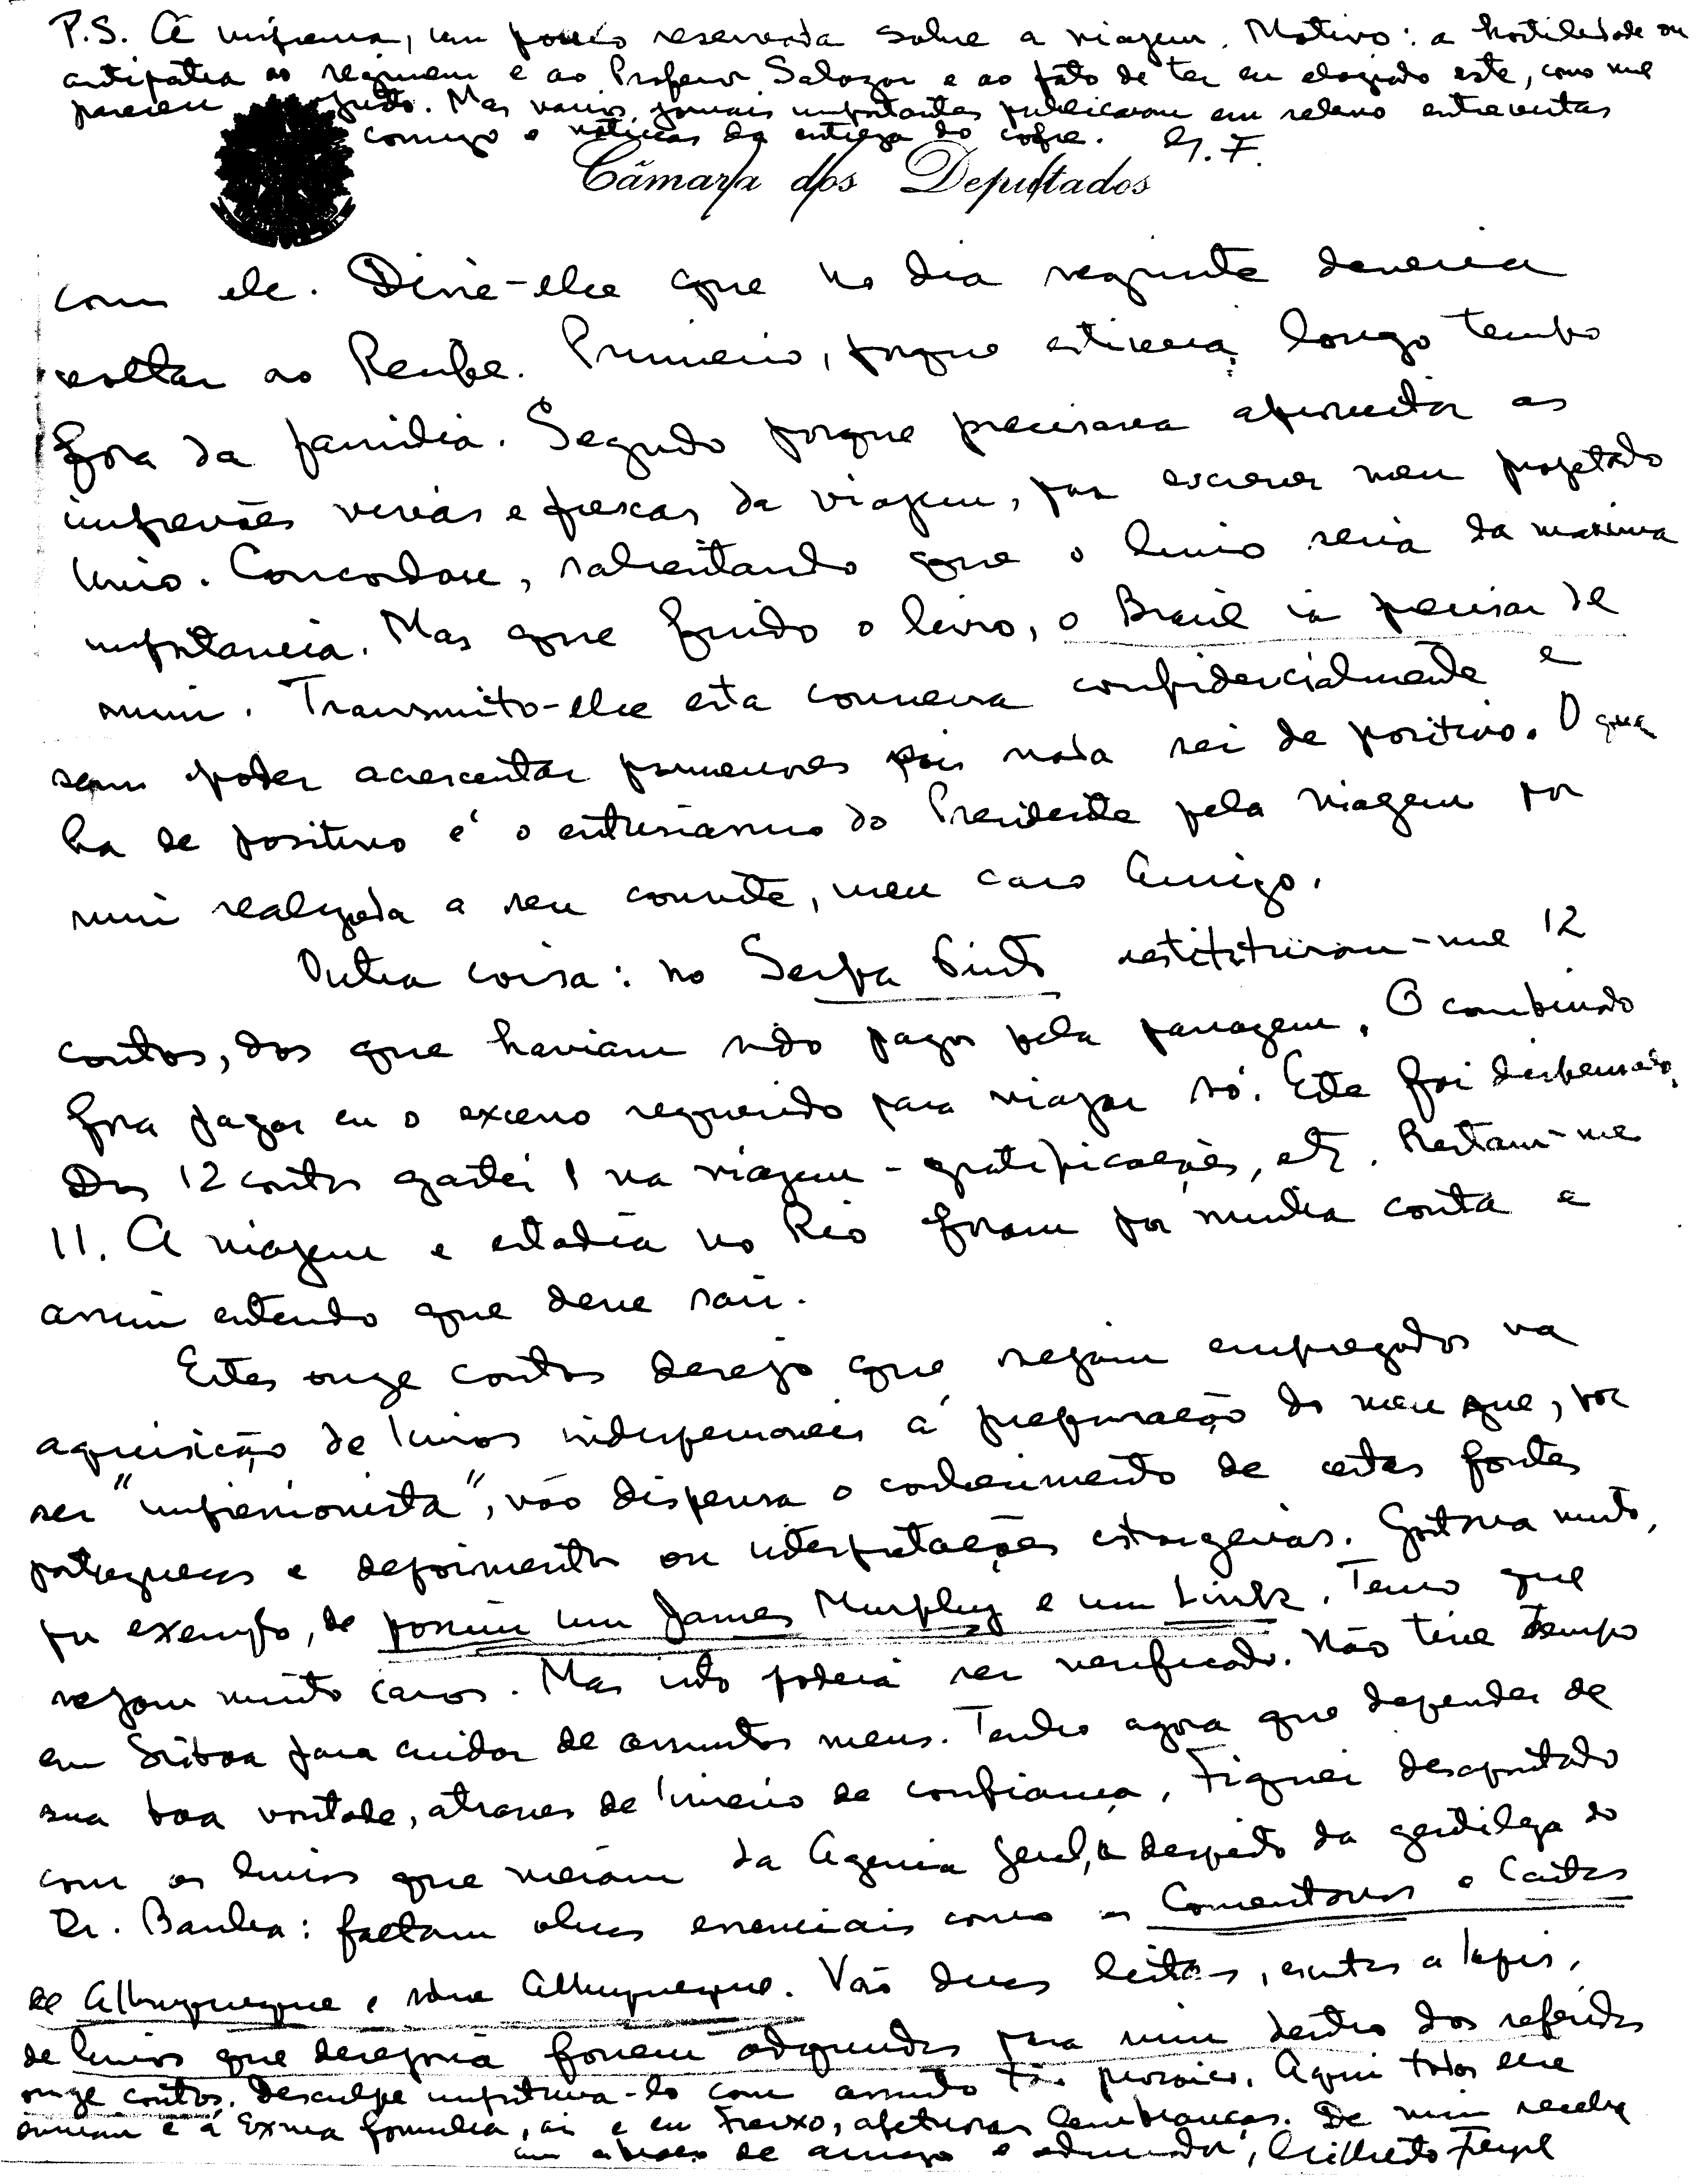 P.S. A imprensa, um pouco reservada sobre a viagem. Motivo: a hostilidade ou
antipatia ao regimem e ao Professor Salazar e ao fato de ter eu elogiado este, como me
pareceu justo. Mas varios jornais importantes publicaram em relevo entrevistas
comigo e noticias da entrega do cofre. G. F.
Câmara dos Deputados
com ele. Disse-lhe que no dia seguinte deveria
voltar ao Recife. Primeiro, porque estivera longo tempo
fora da familia. Segundo porque precisava aproveitar as
impressões vivas e frescas da viagem, para escrever meu projetado
livro. Concordou, salientando que o livro seria da maxima
importancia. Mas que findo o livro, o Brasil ia precisar de
mim. Transmito-lhe esta conversa confidencialmente e
sem poder acrescentar pormenores pois nada sei de positivo. O que
ha de positivo é o entusiasmo do Presidente pela viagem por
mim realizada a seu convite, meu caro Amigo.
Outra coisa: no Serpa Pinto restituiram-me 12
contos, dos que haviam sido pagos pela passagem. O combinado
fora pagar eu o excesso requerido para viajar só. Este foi dispensado.
Dos 12 contos gastei 1 na viagem - gratificações, etc. Restam-me
11. A viagem e estadia no Rio foram por minha conta e
assim entendo que deve sair.
Estes onze contos desejo que sejam empregados na
aquisição de livros indispensaveis á preparação do meu que, por
ser "impressionista", não dispensa o conhecimento de certas fontes
portuguesas e depoimentos ou interpretações estrangeiras. Gostaria muito,
por exemplo, de possuir um James Murphy e um Link. Temo que
sejam muito caros. Mas isto poderá ser verificado. Não tive tempo
em Lisboa para cuidar de assuntos meus. Tenho agora que depender de
sua boa vontade, atraves de livreiro de confiança. Fiquei desapontado
com os livros que vieram da Agencia Geral, a despeito da gentileza do
Dr. Banha: faltam obras essenciais como os Comentarios e Cartas
de Albuquerque e sobre Albuquerque. Vão duas listas, escritas a lapis,
de livros que desejaria fossem adquiridos para mim dentro dos referidos
onze contos. Desculpe importuna-lo com assunto tão prosaico. Aqui todos lhe
enviam e á Exma familia, aí e em Freixo, afetuosas lembranças. De mim receba
um abraço de amigo e admirador, Gilberto Freyre